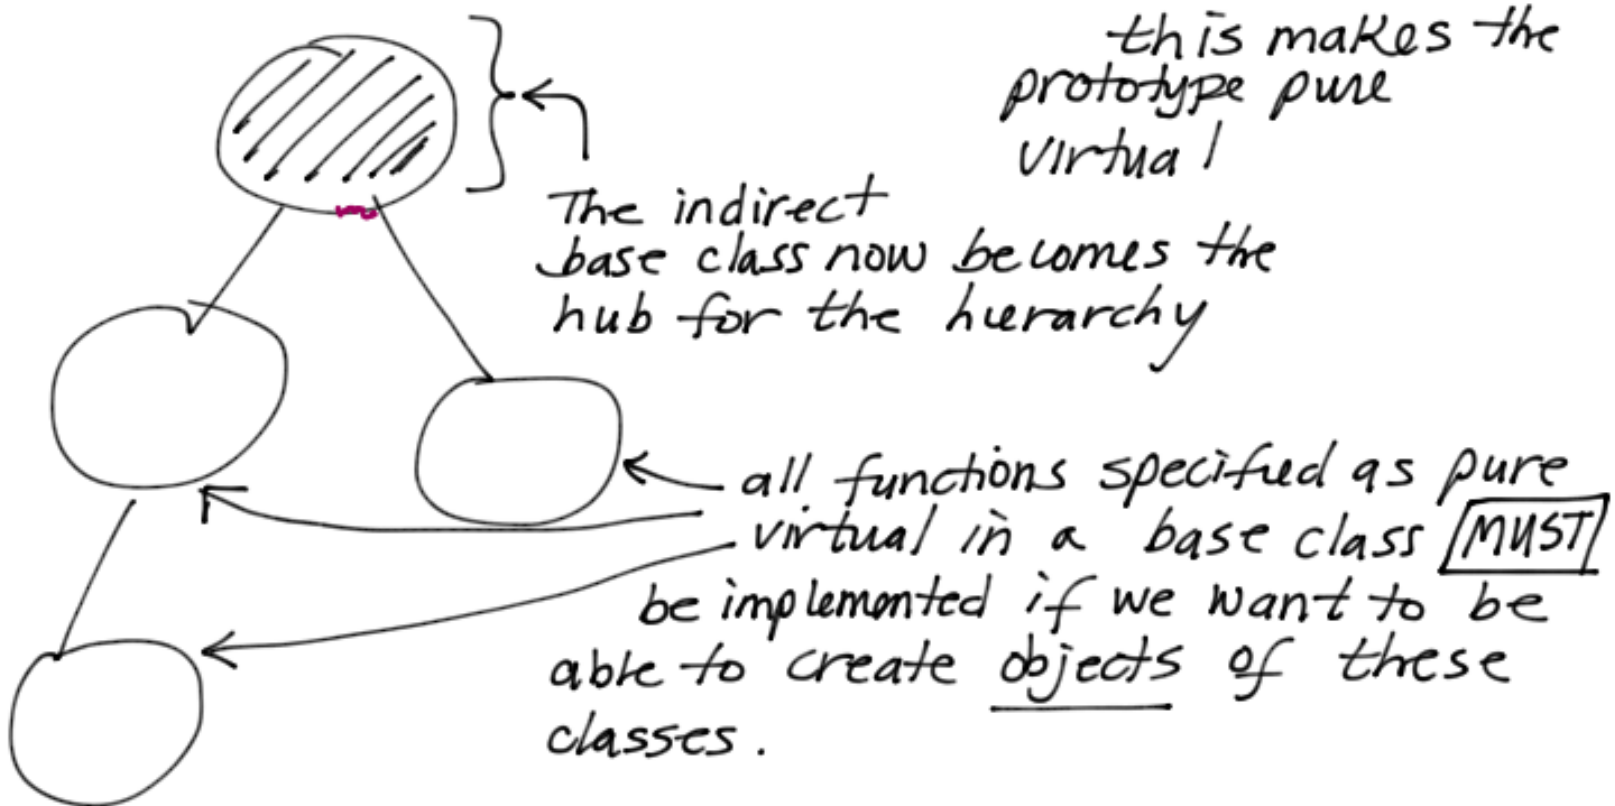 this makes the
prototype pure
virtual
The indirect
base class now becomes the
hub for the hierarchy
all functions specified as pure
virtual in a base class MUST
be implemented if we want to be
able to create objects of these
classes.